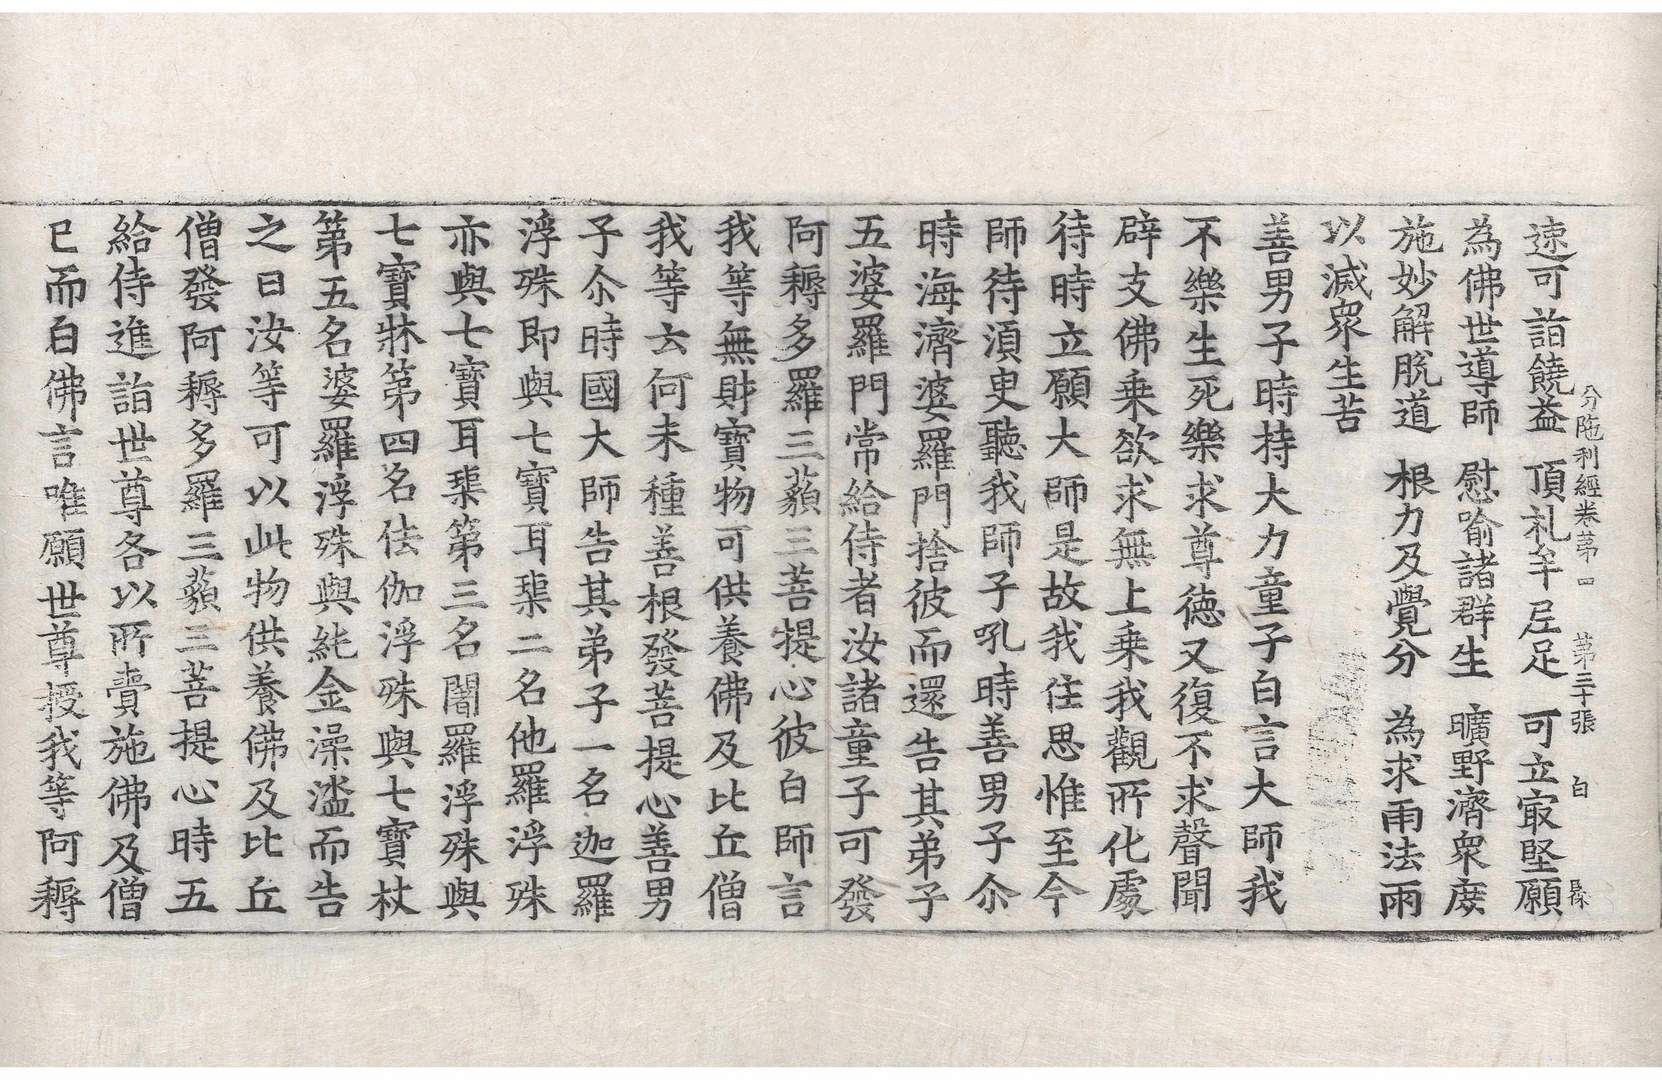 分陁利經卷第四 第三十張 白
速可詣饒益 頂礼牟尼足 可立㝡堅願
為佛世導師 慰喻諸群生 曠野濟衆庶
施妙解脫道 根力及覺分 為求雨法雨
以滅衆生苦
善男子時持大力童子白言大師我
不樂生死樂求尊德又復不求聲聞
辟支佛乗欲求無上乗我觀所化處
待時立願大師是故我住思惟至今
師待須臾聽我師子吼時善男子尒
時海濟婆羅門捨彼而還告其弟子
五婆羅門常給侍者汝諸童子可發
阿耨多羅三藐三菩提心彼白師言
我等無財寶物可供養佛及比丘僧
我等云何未種善根發菩提心善男
子尒時國大師告其弟子一名迦羅
浮殊即與七寶耳璖二名他羅浮殊
亦與七寶耳璖第三名闍羅浮殊與
七寶牀第四名佉伽浮殊與七寶杖
第五名婆羅浮殊與純金澡㼜而告
之曰汝等可以此物供養佛及比丘
僧發阿耨多羅三藐三菩提心時五
給侍進詣世尊各以所賷施佛及僧
已而白佛言唯願世尊授我等阿耨